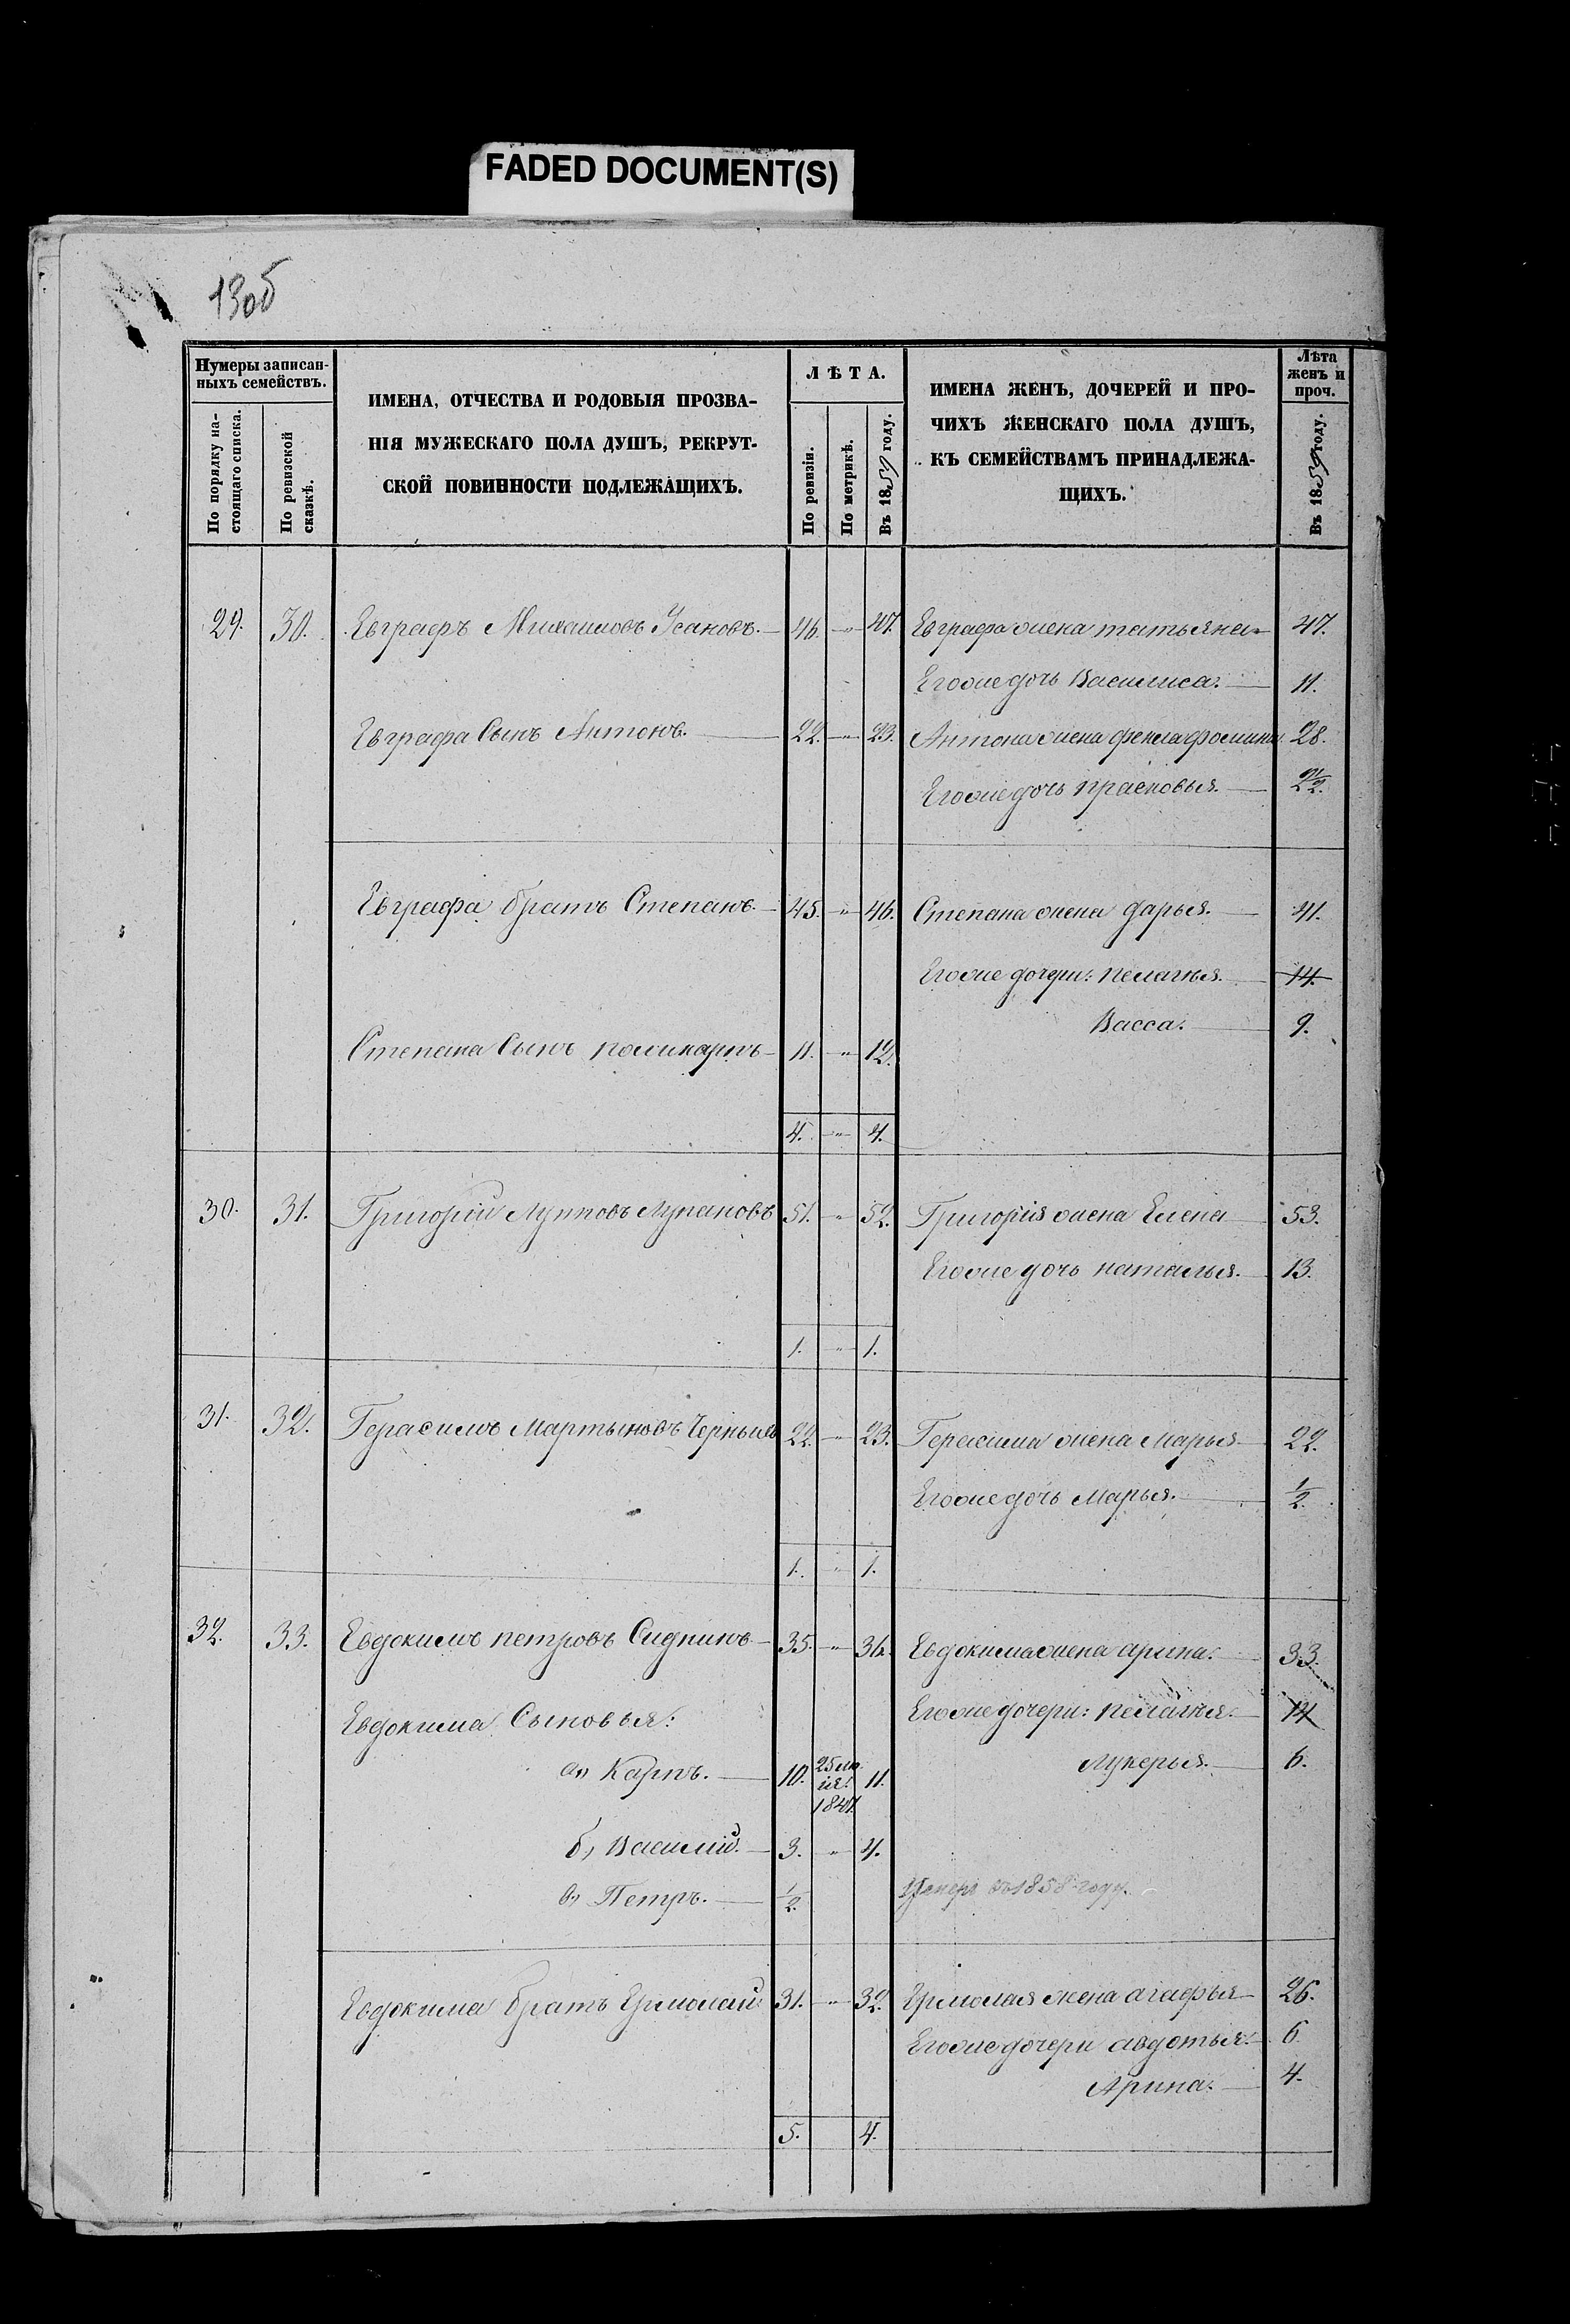 FADED DOCUMENT(S)
13об
Нумеры записан-
ныхъ семействъ.
По порядку на-
стоящаго списка.
По ревизской
сказкѣ.
ИМЕНА, ОТЧЕСТВА И РОДОВЫЯ ПРОЗВА-
НІЯ МУЖЕСКАГО ПОЛА ДУШЪ, РЕКРУТ-
СКОЙ ПОВИННОСТИ ПОДЛЕЖАЩИХЪ.
ЛѢТА.
По ревизіи.
По метрикѣ.
Въ 1859 году.
ИМЕНА ЖЕНЪ, ДОЧЕРЕЙ И ПРО-
ЧИХЪ ЖЕНСКАГО ПОЛА ДУШЪ,
КЪ СЕМЕЙСТВАМЪ ПРИНАДЛЕЖА-
ЩИХЪ.
Лѣта
женъ и
проч.
Въ 1859 году.
29. 30. Евграфъ Михаиловъ Усановъ. 46. " 47. Евграфа жена татьяна 47.
Егоже дочь Василиса. 11.
Евграфа Сынъ Антонъ. 22. " 23. Антона жена фекла фомина 28.
Егоже дочь прасковья. 2 1/2.
Евграфа братъ Степанъ. 45. " 46. Степана жена дарья. 41.
Егоже дочери: пелагея. 14.
Васса. 9.
Степана Сынъ поликарпъ 11. " 12.
4. " 4.
30. 31. Григорій Лупповъ Лупановъ 51. " 52. Григорія жена Елена 53.
Егоже дочь наталья. 13.
1. " 1.
31. 32. Герасимъ Мартыновъ 22. " 23. Герасима жена Марья 22.
Егоже дочь Марья. 1/2.
1. " 1.
32. 33. Евдокимъ петровъ Сидникъ 35. " 36. Евдокима жена арина. 33.
Евдокима Сыновья: Егоже дочери: пелагея. 14
а, Карпъ. 10. 25 мая 1847. 11. Лукерья. 6.
б, Василій. 3. " 4.
в, Петръ. 1/2. 1858 году.
Евдокима братъ Ермолай 31. " 32. Ермолая жена агафья 26.
Егоже дочери авдотья. 6.
Арина. 4.
5. 4.